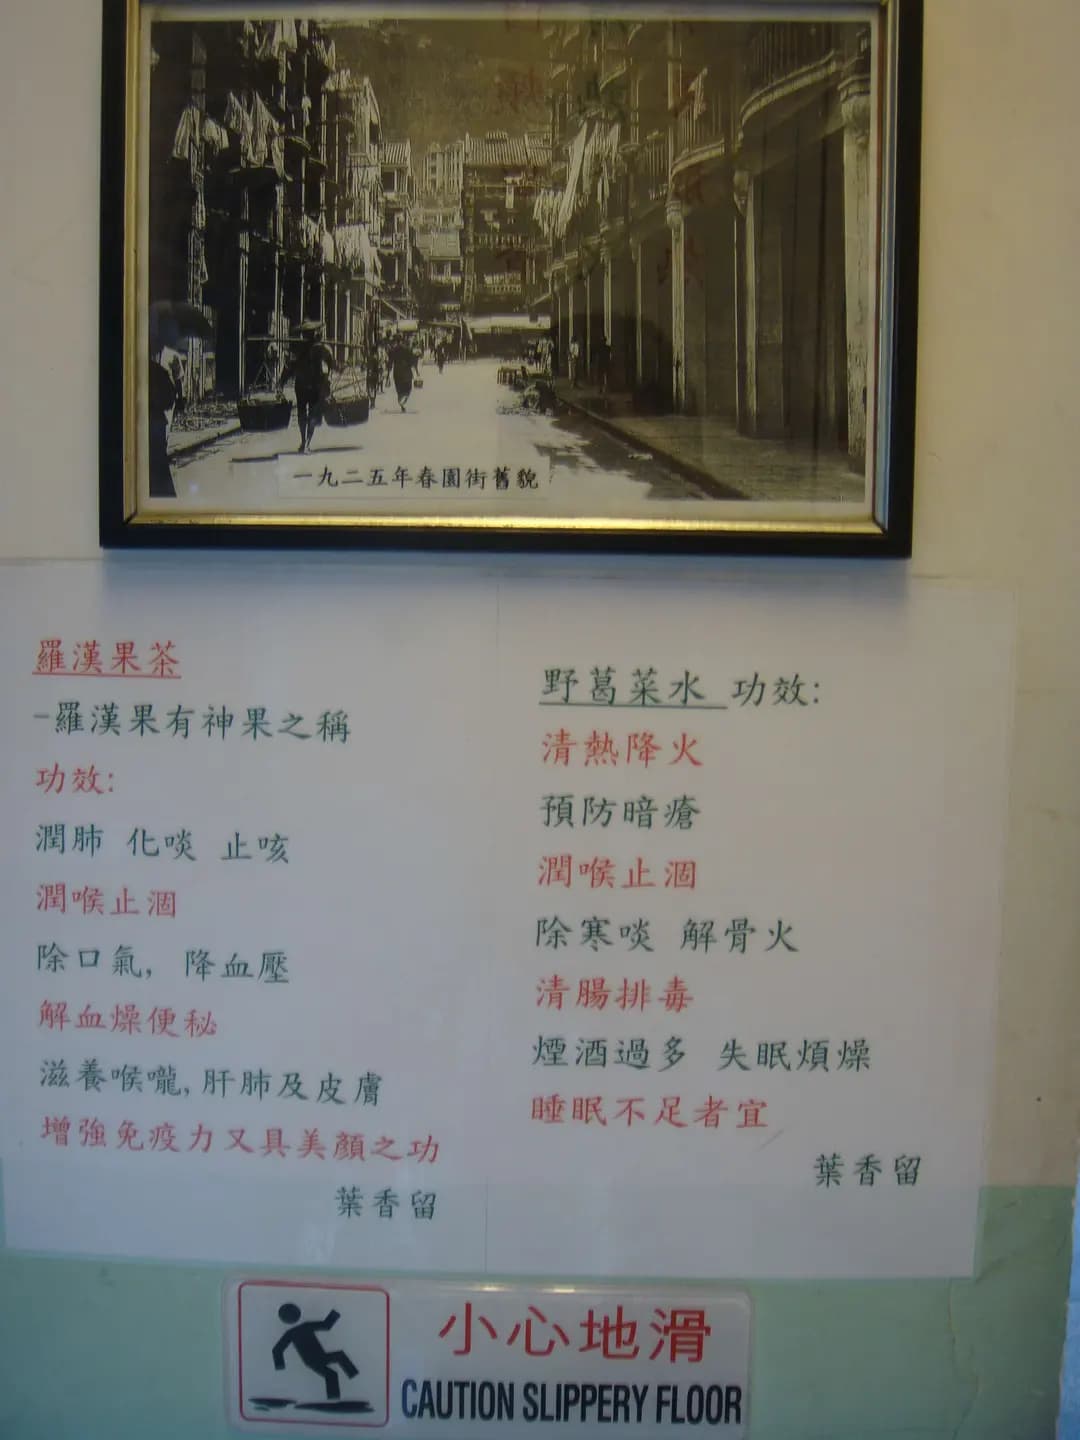 一九二五年春園街舊貌
羅漢果茶
-羅漢果有神果之稱
功效:
潤肺 化啖 止咳
潤喉止涸
除口氣, 降血壓
解血燥便秘
滋養喉嚨, 肝肺及皮膚
增強免疫力又具美顏之功
葉香留
野葛菜水 功效:
清熱降火
預防暗瘡
潤喉止涸
除寒啖 解骨火
清腸排毒
煙酒過多 失眠煩燥
睡眠不足者宜
葉香留
小心地滑
CAUTION SLIPPERY FLOOR